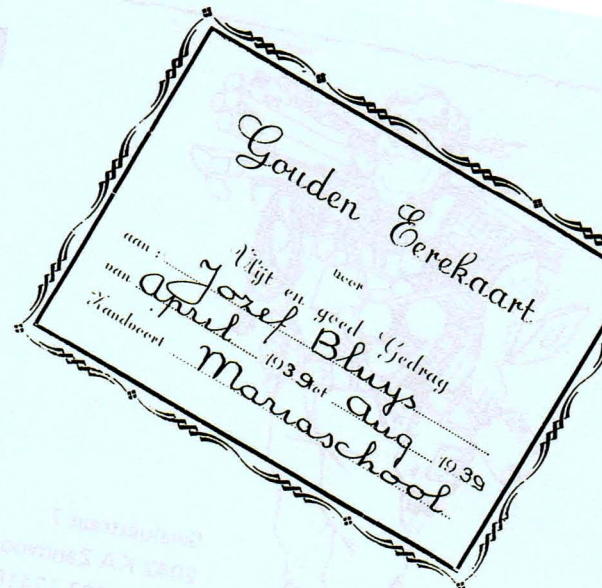 Gouden Eerekaart
voor
Vlijt en goed Gedrag
aan: Jozef Bluys
van April 1939 tot Aug 1939
Zandvoort Mariaschool